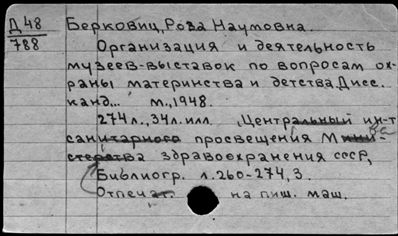 Д 48
788
Берковиц, Роза Наумовна.
Организация и деятельность
музеев-выставок по вопросам ох-
раны материнства и детства. Дисс.
канд... м., 1948.
274 л., 34 л. илл. Центральный ин-т
санитарного просвещения Мини-
стерства здравоохранения СССР,
Библиогр. л. 260-274, 3.
Отпечат. на пиш. маш.